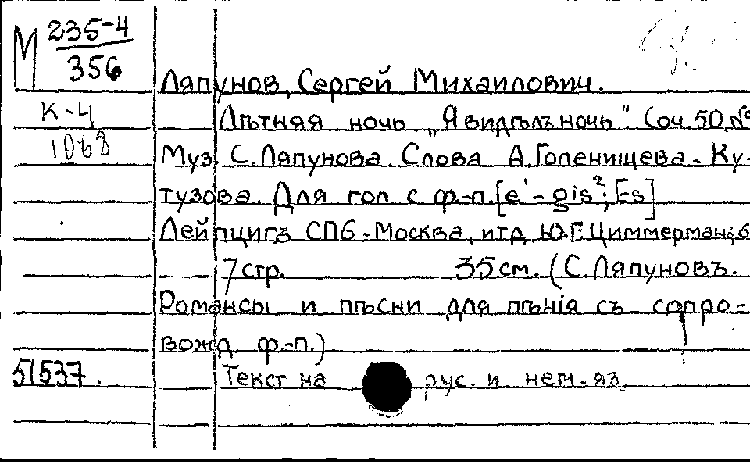 М 235-4
356
Ляпунов, Сергей Михайлович.
К-4
Лѣтняя ночь „Я видѣлъ ночь". Соч. 50, №
1068
Муз. С. Ляпунова. Слова А. Голенищева-Ку-
тузова. Для гол. с ф.-п. [e'-gis²; Es]
Лейпцигъ СПб.-Москва, итд, Ю.Г. Циммерманъ, б
7 стр. 35 см. (С. Ляпуновъ.
Романсы и пѣсни для пѣнія съ сопро-
вожд ф.-п.)
51537.
Текст на рус. и нем. яз.